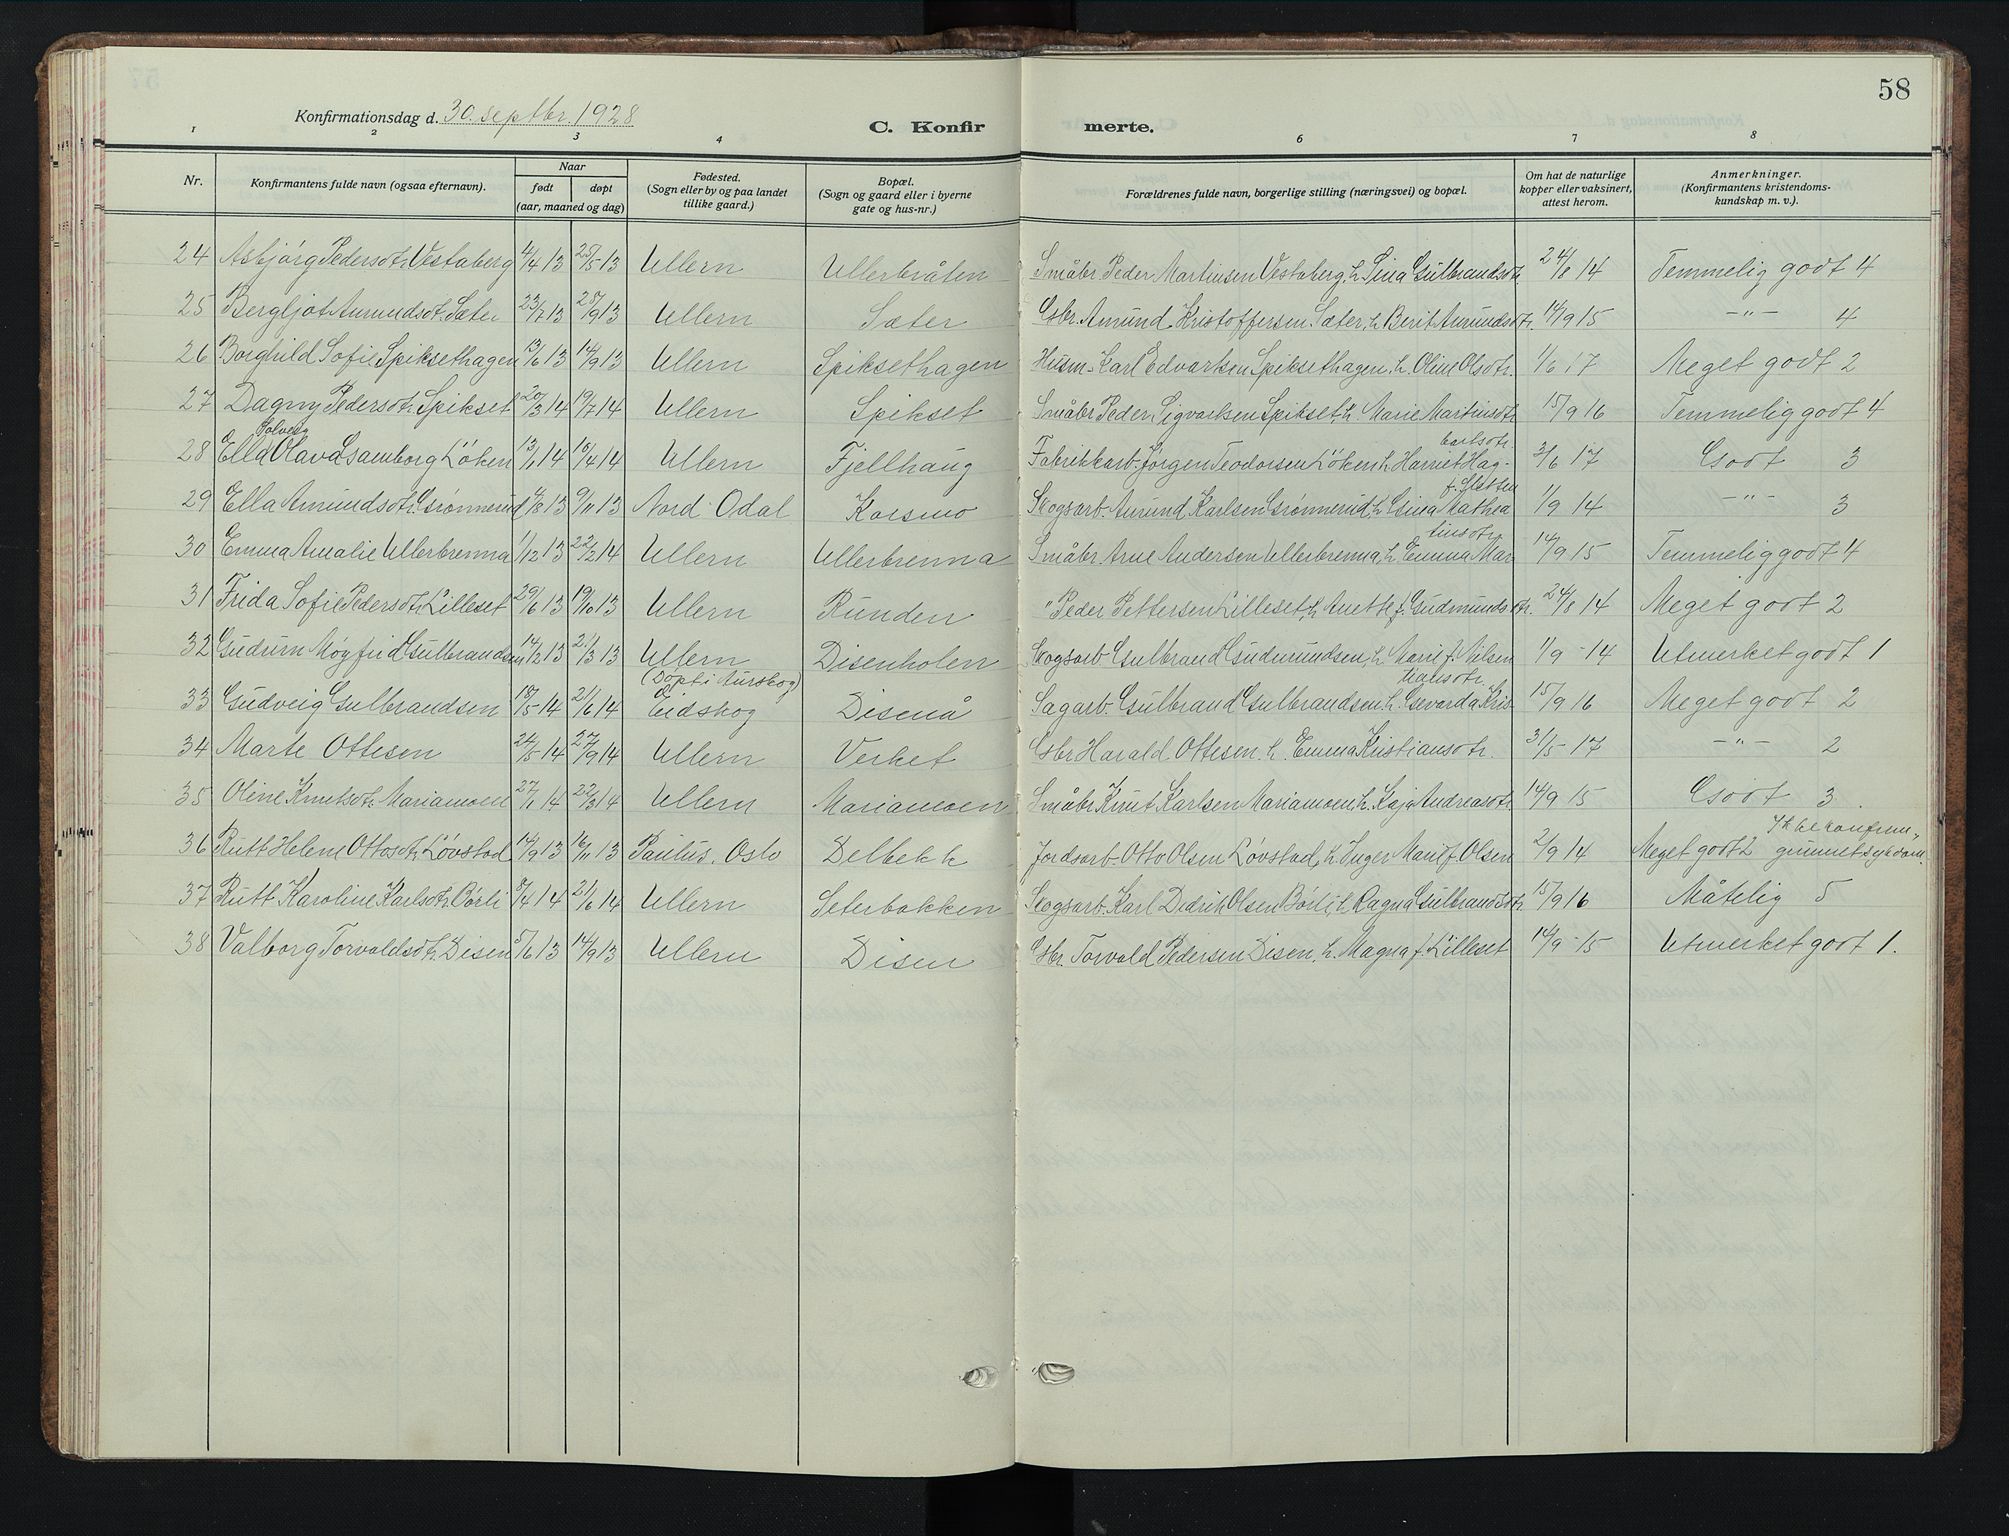 58
Konfirmationsdag d. 30. septbr. 1928
C. Konfirmerte.
1 2 3 4 6 7 8
Nr.
Konfirmantens fulde navn (ogsaa efternavn).
Naar
født døpt
(aar, maaned og dag)
Fødested.
(Sogn eller by og paa landet
tillike gaard.)
Bopæl.
(Sogn og gaard eller i byerne
gate og hus-nr.)
Forældrenes fulde navn, borgerlige stilling (næringsvei) og bopæl.
Om hat de naturlige
kopper eller vaksinert,
attest herom.
Anmerkninger.
(Konfirmantens kristendoms-
kundskap m. v.).
24 Asbjørg Pedersdtr. Vestaberg 4/4 13 25/5 13 Ullern Ullerbråten Småbr. Peder Martinsen Vestaberg, h. Lina Gulbrandsdtr. 24/8 14 Temmelig godt 4
25 Bergljot Amundsdt. Sæter 23/7 13 28/9 13 Ullern Sæter Gbr. Amund Kristoffersen Sæter, h. Berit Amundsdtr. 14/9 15 -"- 4
26 Borghild Sofie Spiksethagen 13/6 13 14/9 13 Ullern Spiksethagen Husm. Karl Edvartsen Spiksethagen, h. Oline Olsdtr. 1/6 17 Meget godt 2
27 Dagny Pedersdtr. Spikset 20/3 14 19/7 14 Ullern Spikset Småbr. Peder Sigvartsen Spikset, h. Marie Martinsdtr 15/9 16 Temmelig godt 4
Solveig
28 Ella Olava Løken 13/1 14 10/4 14 Ullern Fjellhaug Fabrikkarb. Jørgen Teodorsen Løken, h. Harriet Hag-
bartsdtr. 3/6 17 Godt 3
29 Ella Amundsdtr. Grønnerud 4/8 13 9/11 13 Nord-Odal Korsmo Skogsarb. Amund Karlsen Grønnerud, h. Gina Mathea
f. Sletten 1/9 14 -"- 3
30 Emma Amalie Ullerbrenna 1/12 13 22/2 14 Ullern Ullerbrenna Småbr. Arne Andersen Ullerbrenna, h. Emma Mar
tinsdtr. 14/9 15 Temmelig godt 4
31 Frida Sofie Pedersdtr. Lilleset 29/6 13 19/10 13 Ullern Runden " Peder Pettersen Lilleset, h. Anette f. Gudmundsdtr. 24/8 14 Meget godt 2
32 Gudrun Møyfrid Gulbrandsen 14/2 13 21/3 13 Ullern
(Døpt i Aurskog) Disenholen Skogsarb. Gulbrand Gudmundsen, h. Marie f. Nilsen 1/9-14 Utmerket godt 1
33 Gudveig Gulbrandsen 18/5 14 21/6 14 Eidskog Disenå Sagarb. Gulbrand Gulbrandsen, h. Gevarda Kris
tiansdtr. 15/9 16 Meget godt 2
34 Marte Ottesen 24/5 14 27/9 14 Ullern Verket Gbr. Harald Ottesen, h. Emma Kristiansdtr. 31/5-17 -"- 2
35 Oline Knutsdtr. Mariamoen 27/1 14 22/3 14 Ullern Mariamoen Småbr. Knut Karlsen Mariamoen h. Kaja Andreasdtr. 14/9 15 Godt 3.
36 Rutt Helene Ottosdtr. Løvstad 14/9 13 16/11 13 Paulus, Oslo Delbekk Jordsarb. Otto Olsen Løvstad, h. Inger Marie f. Olsen 2/9 14 Meget godt 2 Ikke konfirm.
grunnet sykdom.
37 Rutt Karoline Karlsdtr. Børli 8/4 14 21/6 14 Ullern Seterbakken Skogsarb. Karl Didrik Olsen Børli, h. Ragna Gulbrandsdtr. 15/9 16 Måtelig 5
38 Valborg Torvaldsdt. Disen 5/6 13 14/9 13 Ullern Disen Gbr. Torvald Pedersen Disen, h. Magna f. Lilleset 14/9-15 Utmerket godt 1.